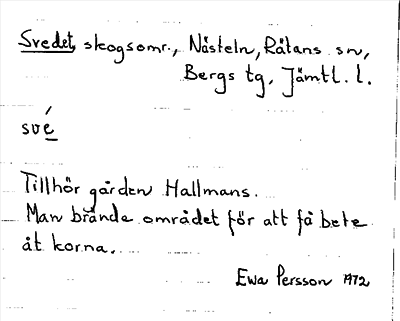 Svedet, skogsomr., Nästeln, Rätans sn,
Bergs tg, Jämtl. l.
své
Tillhör gården Hallmans.
Man brände området för att få bete
åt korna.
Ewa Persson 1972